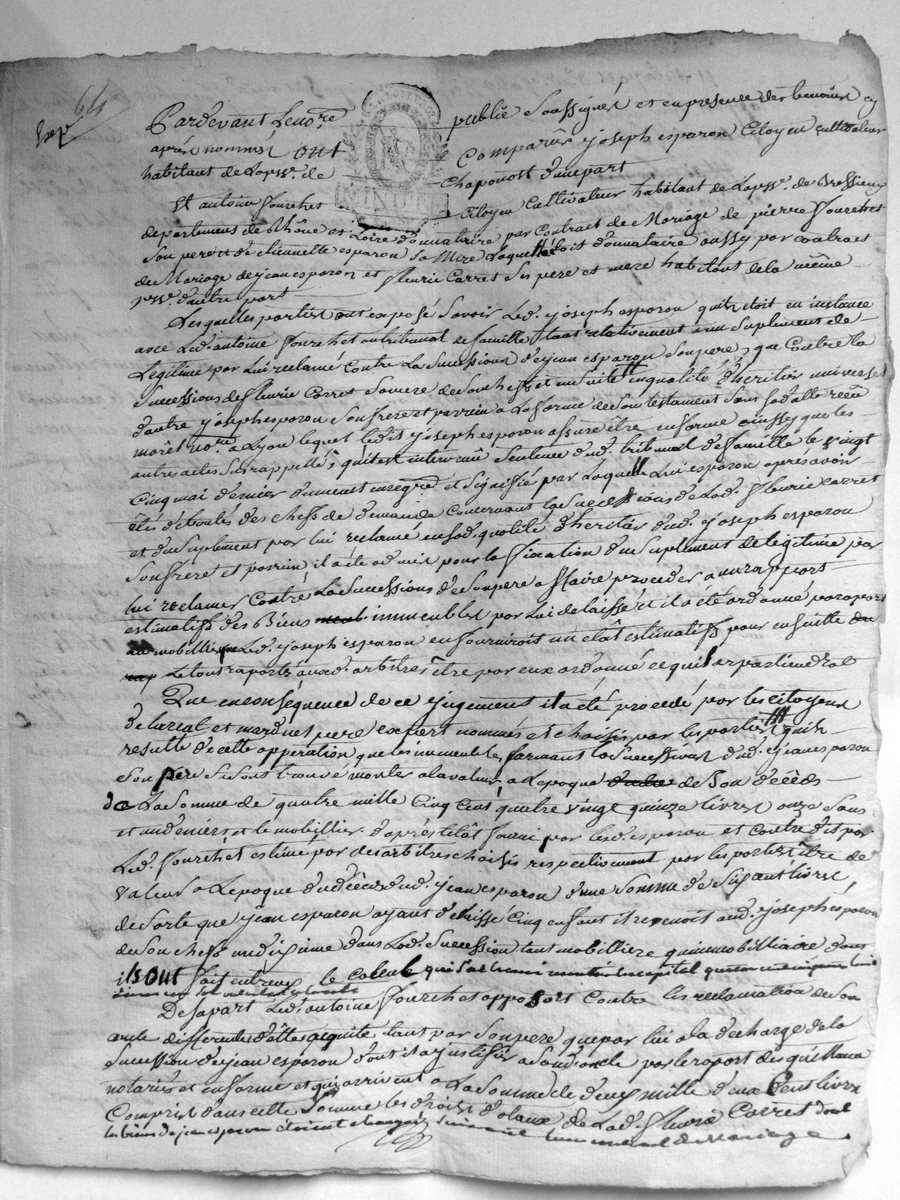 64
Exp
Pardevant Le no.re public Soussigné et en présence des temoins cy
après nommés ont Comparûs joseph esparon Citoyen cultivateur
habitant de la p.sse de Chaponost d'une part
Et antoine fourchet Citoyen Cultivateur habitant de la p.sse de Brossieux
departement de Rhône et Loire donnataire par Contract de Mariage de pierre fourchet
Son pere et d'etiennette esparon Sa Mere Laquelle étoit donnataire aussy par contract
de Mariage de jean esparon et fleurie Carret Ses pere et mere habitant de la même
p.sse d'autre part
Lesquelles parties ont exposé Savoir Led. joseph esparon qu'il étoit en instance
avec Led. antoine fourchet au tribunal de famille tant relativement a un suplement de
Legitime par Lui reclamé Contre La Succession de jean esparon Son pere, que Contre la
Succession de fleurie Carret Sa mere de Son cheff et en Suite en qualité d'heritier universel
d'autre joseph esparon Son frere et parrein a La forme de Son testament Sans datte reçu
morêt no.re a Lyon lequel led. joseph esparon assure être en forme ainssy que les
autres actes Surappellés; qu'il est intervenû Sentence dud. tribunal de famille le vingt
Cinq mai dernier duement enreg.ré et Signifié par Laquelle Lui esparon après avoir
étés débouté des cheffs de demande Concernant la Succession de Lad. fleurie Carret
et du Suplement par lui reclamé en Sad. qualité d'heritier dud. joseph esparon
Son frere et parrein, il a été admis pour la fixation du Suplement de legitime par
lui reclamer Contre La Succession de Son pere a faire proceder a un rapport
estimatif des Biens immeubles par Lui delaissé et il a été ordonné par raport
au mobillier que Led. joseph esparon en fourniroit un état estimatif pour en Suitte
Le tout raporté aux d. arbitres être par eux ordonné ce qu'il appartiendrat
Que en conséquence de ce jugement il a été procedé par les Citoyens
Delorme et marduel pere expert nommés et choisis par les parties qu'il
resulte de cette opperation que les immeubles formant la Succession dud. jean esparon
Son pere Se Sont trouvé monter a la valeur a L'epoque de Son décéds
de La Somme de quatre mille Cinq Cent quatre vingt quinze livres onze Sous
et un deniers et le mobillier d'après l'état fourni par led. esparon et Contredit par
Led. fourchet estimé par des arbitres choisis respectivement par les parties être de
valeur a L'epoque du décéd dud. jean esparon d'une Somme de Livre
de Sorte que jean esparon ayant delaissé Cinq enfant il revenoit aud. joseph esparon
de Son cheff un dixieme dans Lad. Succession tant mobilliere qu'immobilliaire dont
ils ont fait entreux le calcul
De sa part Led. antoine fourchet opposoit Contre les reclamation de Son
oncle differentes dettes aquitté tant par Son pere que par lui a la decharge de la
Succession de jean esparon dont il a justifié a Son d. oncle par le raport des quittances
notariés et en forme et qui arrivent a La Somme de deux mille deux Cent livre
Compris dans cette Somme les droits dotaux de Lad. fleurie Carret dont
les biens de jean esparon étoient chargés Suivant Leur contract de Mariage.